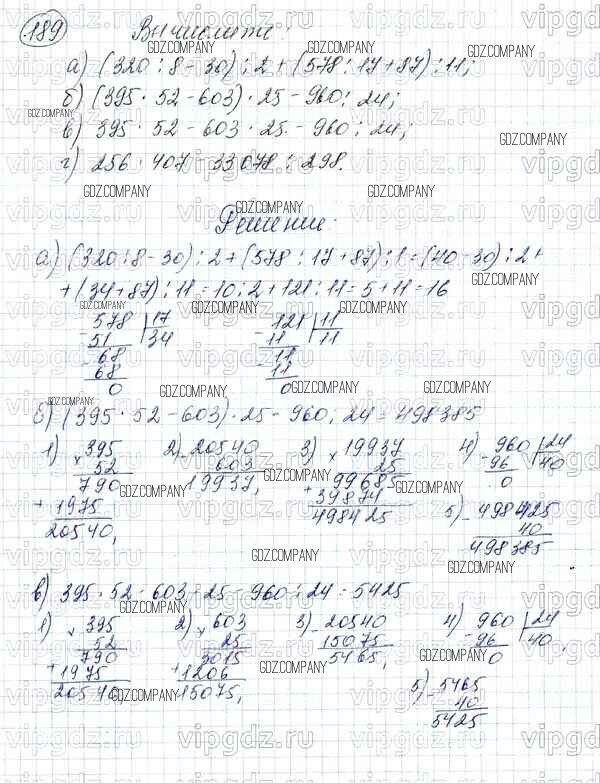 189 Вычислите:
а) (320 : 8 - 30) : 2 + (578 : 17 + 87) : 11;
б) (395 · 52 - 603) · 25 - 960 : 24;
в) 395 · 52 - 603 · 25 - 960 : 24;
г) 256 · 407 - 33078 : 298.
Решение:
а) (320 : 8 - 30) : 2 + (578 : 17 + 87) : 1 = (40 - 30) : 2 +
+ (34 + 87) : 11 = 10 : 2 + 121 : 11 = 5 + 11 = 16
578 17 121 11
- 51 34 - 11 11
68 11
- 68 - 11
0 0
б) (395 · 52 - 603) · 25 - 960 : 24 = 498385
1) × 395 2) - 20540 3) × 19937 4) 960 24
52 603 25 - 96 40
790 19937, 99685 0
+ 1975 + 39874 5) - 498425
20540, 498425 40
498385
в) 395 · 52 - 603 · 25 - 960 : 24 = 5425
1) × 395 2) × 603 3) - 20540 4) 960 24
52 25 15075 - 96 40
790 3015 5465, 0
+ 1975 + 1206 5) - 5465
20540, 15075, 40
5425
GDZ.COMPANY
vipgdz.ru